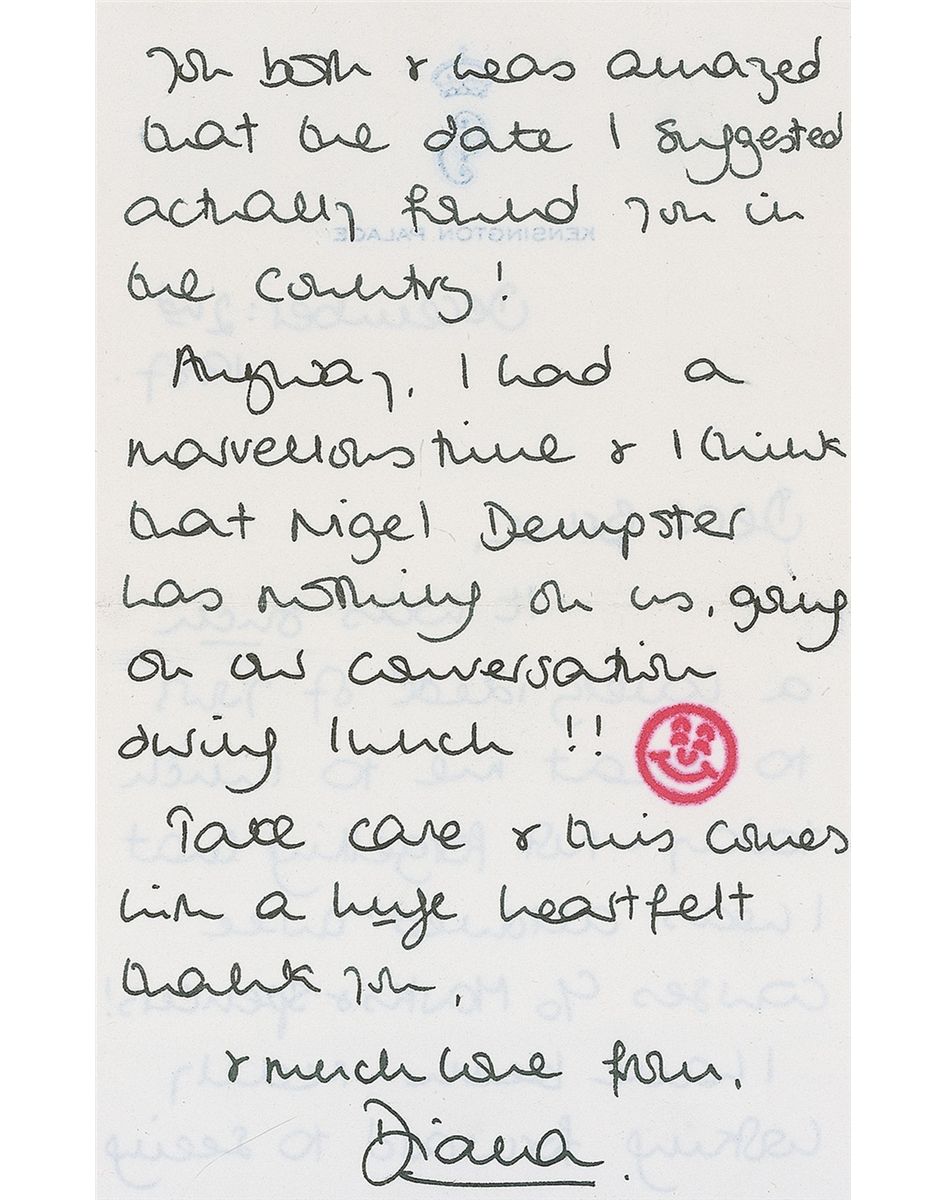 you both & was amazed
that the date I suggested
actually found you in
the country!
Anyway, I had a
marvellous time & I think
that Nigel Dempster
has nothing on us, going
on our conversation
during lunch !!
Take care & this comes
with a huge heartfelt
thank you,
& much love from,
Diana.
KENSINGTON PALACE
December: 2nd